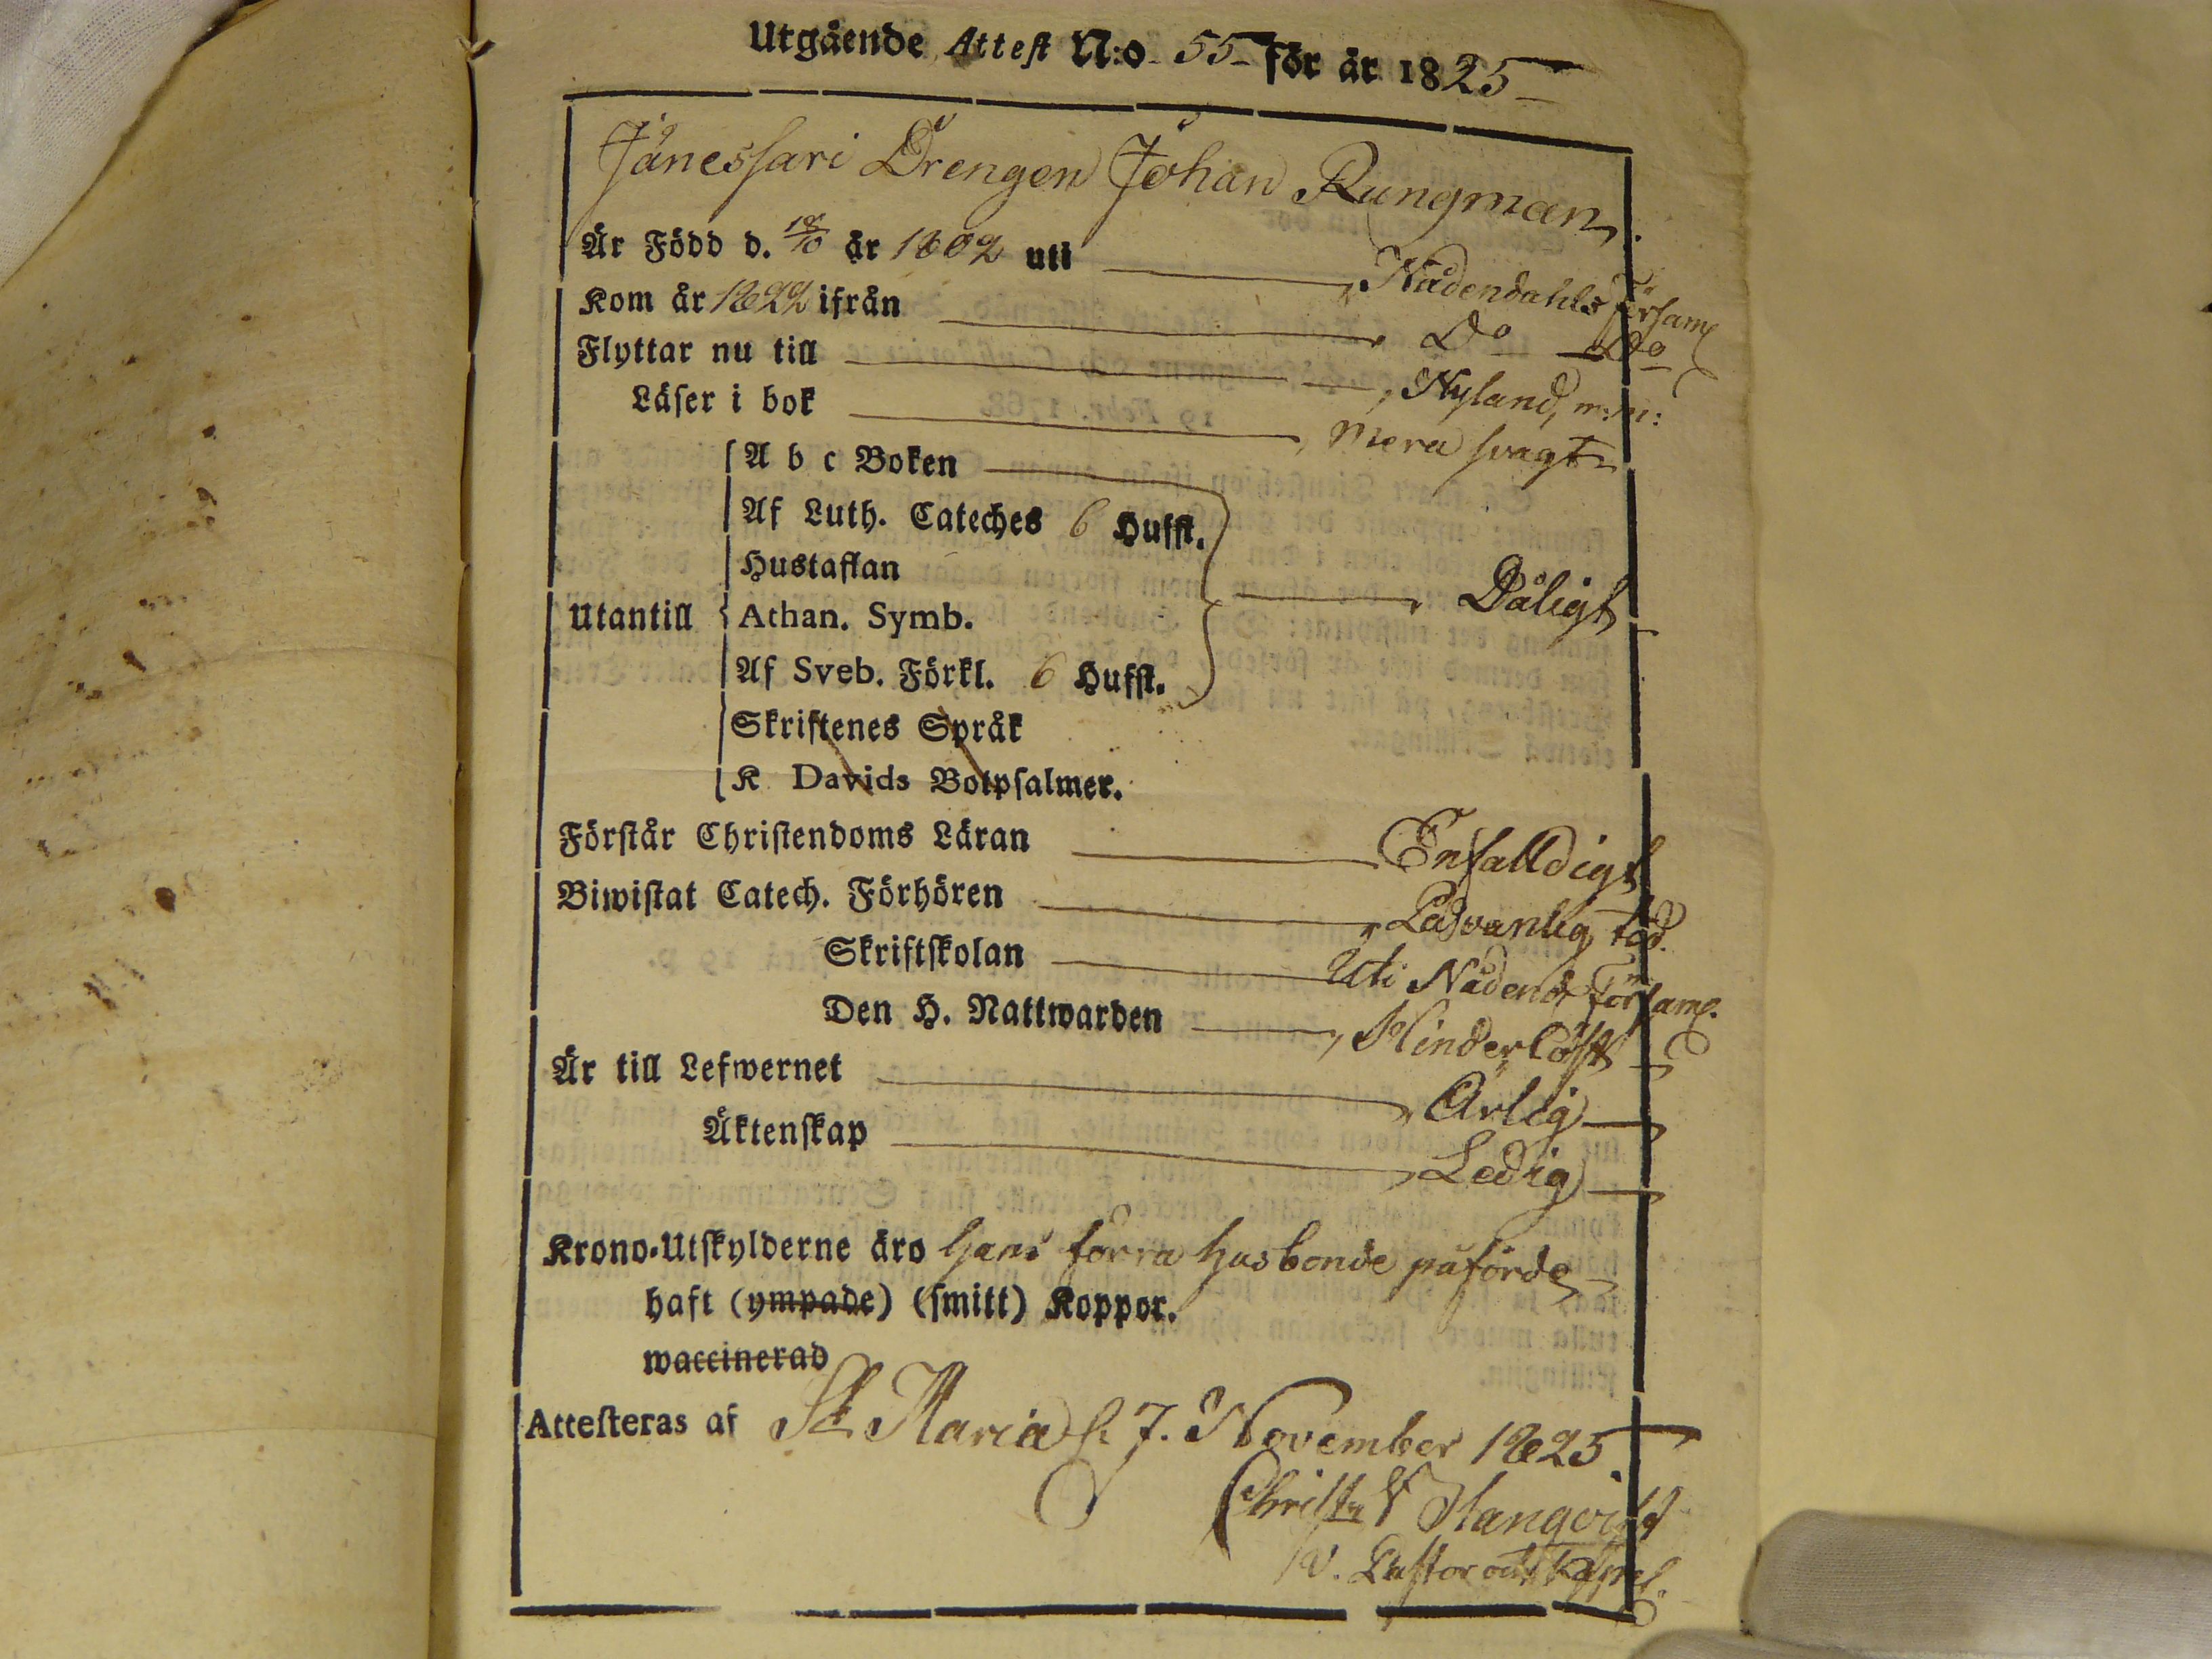 Utgående Attest N:o 55 för år 1825
Jänessari Drengen Johan Rungman
Är Född d. 18/10 år 1802 uti Nådendahls Församl
Kom år 1822 ifrån Do Do
Flyttar nu till Nyland, m:m:
Läser i bok Mera svagt
A b c Boken
Af Luth. Cateches 6 Hufst.
Hustaflan
Utantill Athan. Symb. Dåligt
Af Sveb. Förkl. 6 Hufst.
Skriftenes Språk
K Davids Botpsalmer.
Förstår Christendoms Läran Enfalldigt
Biwistat Catech. Förhören På vanlig tid.
Skriftskolan Uti Nådend: Församl.
Den H. Nattwarden Hinderlöst
Är till Lefwernet Ärlig
Äktenskap Ledig
Krono-Utskylderne äro hans förra husbonde påförde
haft (ympade) (smitt) Koppor.
waccinerad
Attesteras af St Maria d. 7. November 1825.
Christ
V. Pastor och Capel.